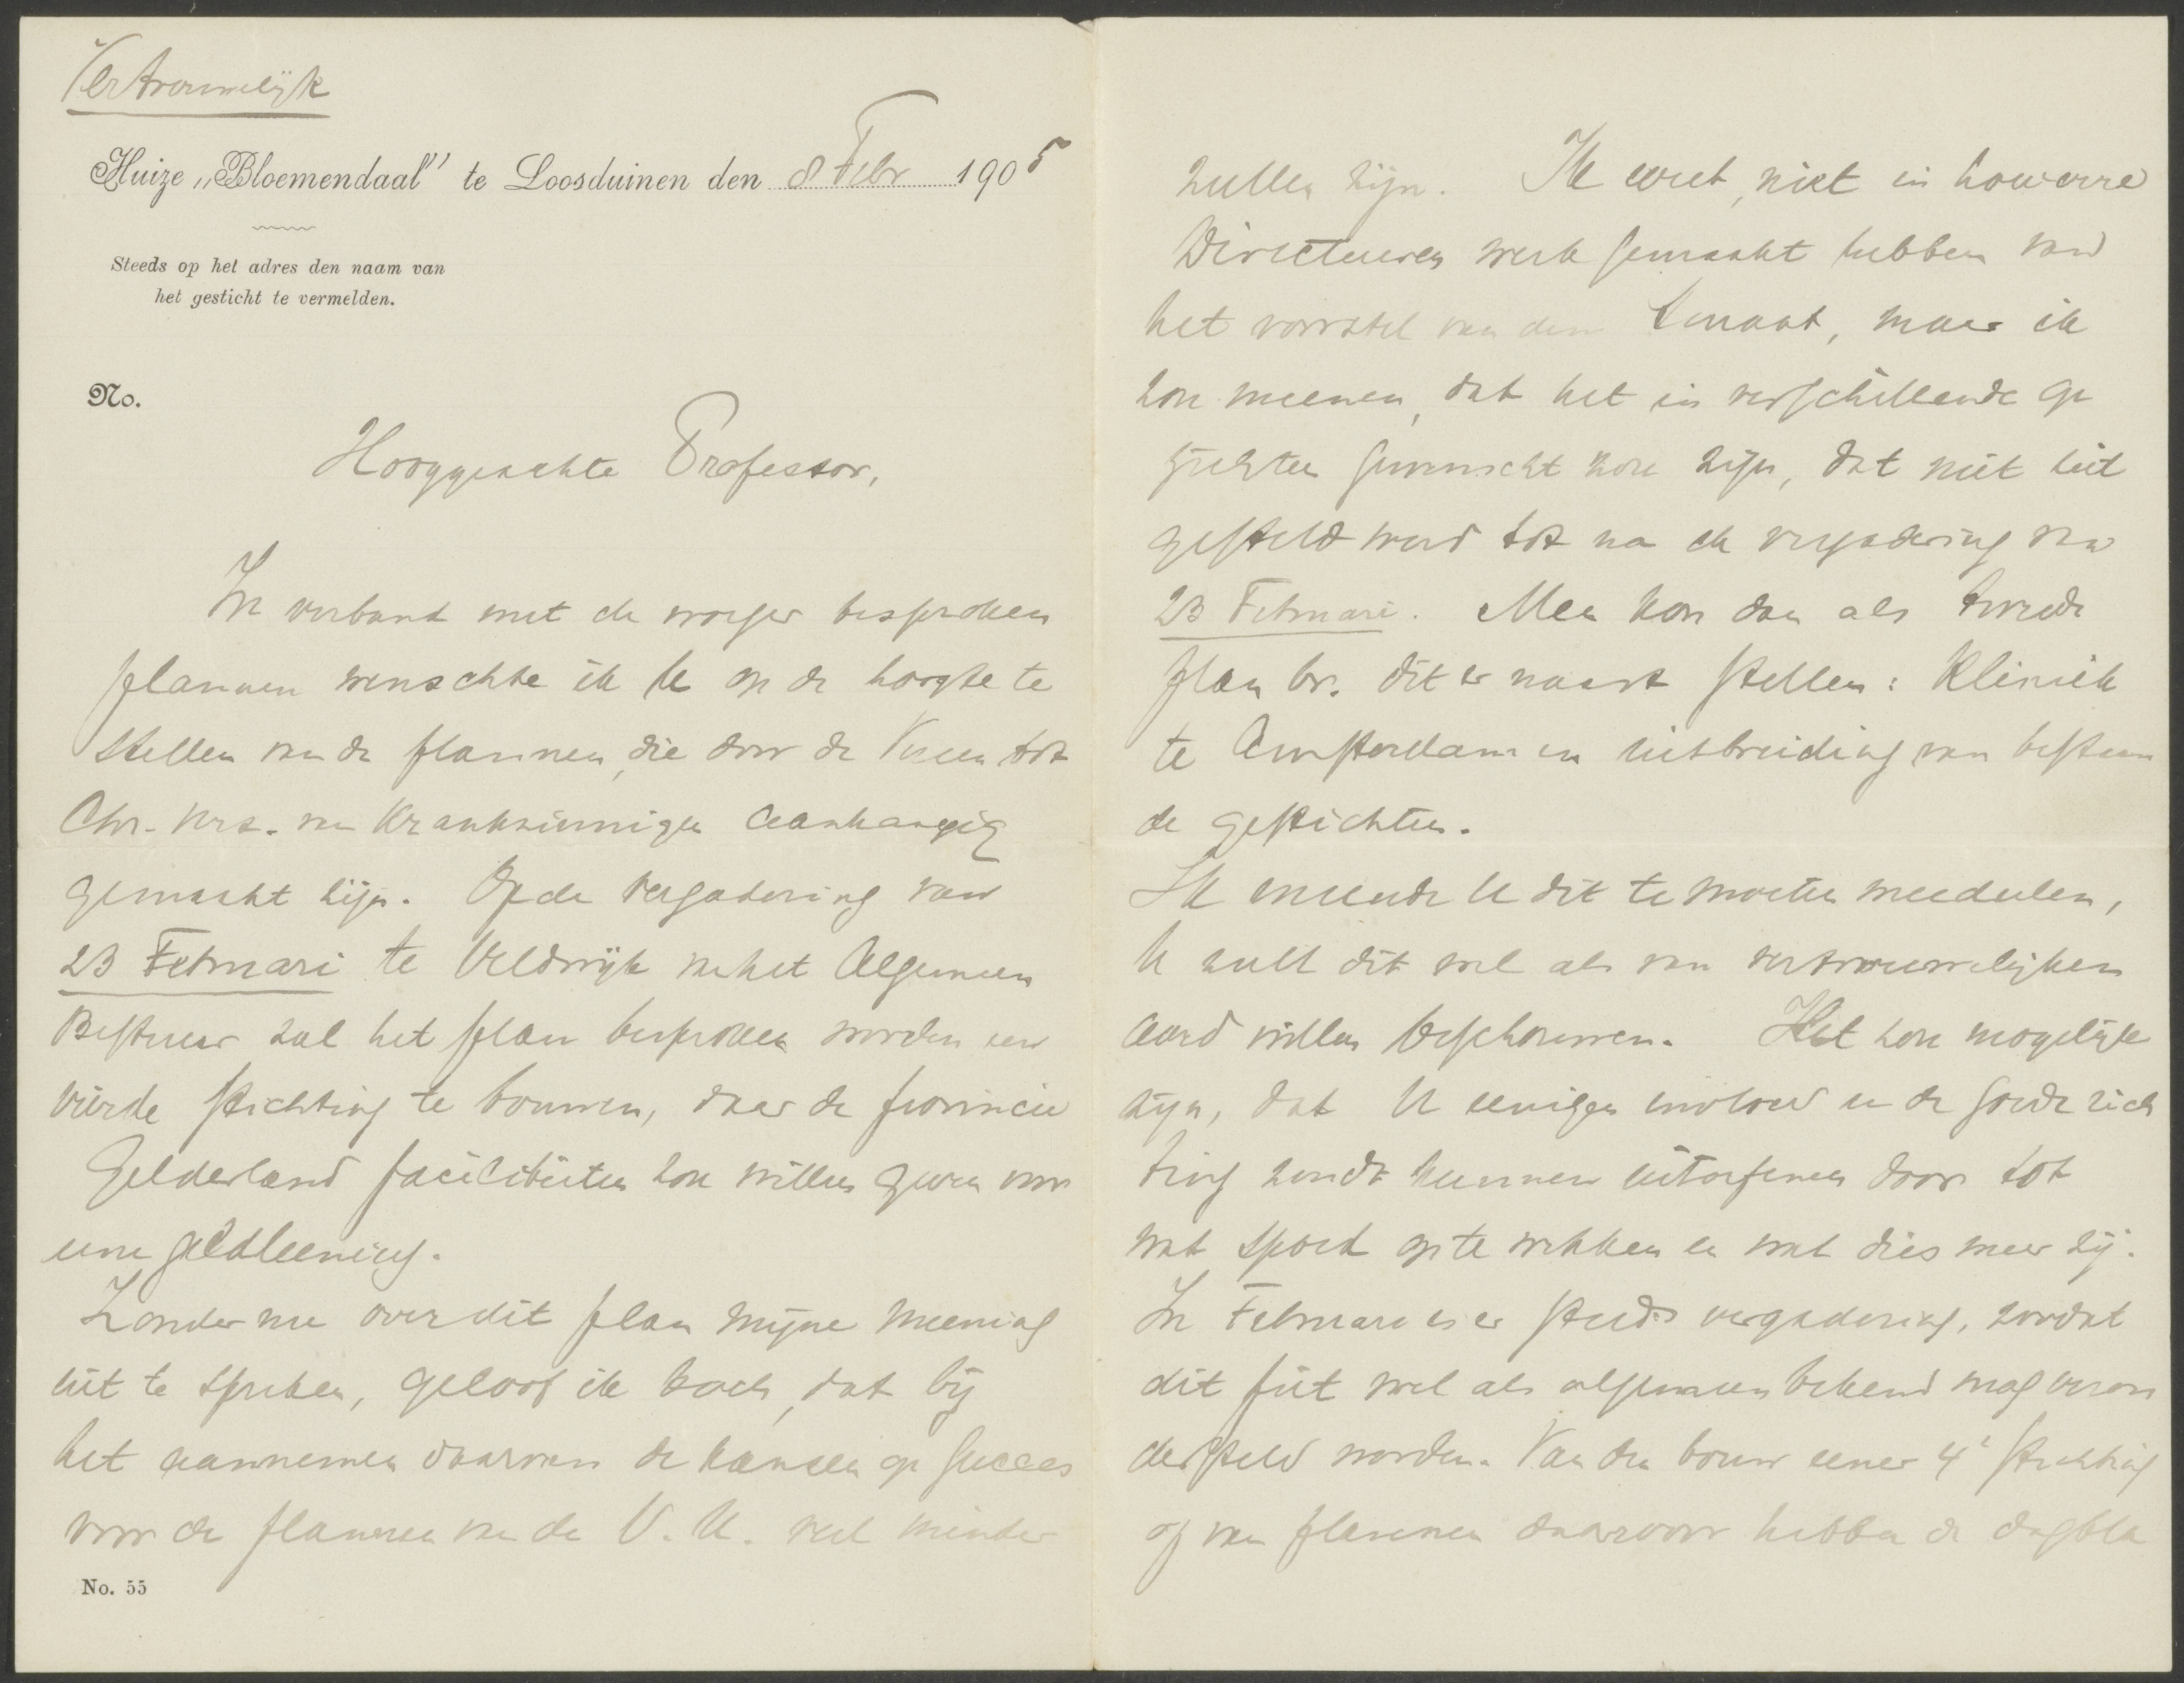 Vertrouwelijk
Huize „Bloemendaal" te Loosduinen den 8 Febr 1905
Steeds op het adres den naam van
het gesticht te vermelden.
No.
Hooggeachte Professor,
In verband met de vroeger besproken
plannen wenschte ik U op de hoogte te
stellen van de plannen, die door de Vereen tot
Chr. Verz. van Krankzinnigen aanhangig
gemaakt zijn. Op de vergadering van
23 Februari te Veldwijk van het Algemeen
Bestuur zal het plan besproken worden een
vierde stichting te bouwen, daar de provincie
Gelderland faciliteiten zou willen geven voor
eene geldleening.
Zonder nu over dit plan mijne meening
uit te spreken, geloof ik toch, dat bij
het aannemen daarvan de kansen op succes
voor de plannen van de V. U. veel minder
No. 55
zullen zijn. Ik weet, niet in hoeverre
Directeuren werk gemaakt hebben van
het voorstel van den Senaat, maar ik
zou meenen, dat het in verschillende op
zichten gewenscht zou zijn, dat niet uit
gesteld werd tot na de vergadering van
23 Februari. Men kon dan als tweede
plan bv. dit er naast stellen: Kliniek
te Amsterdam en uitbreiding van bestaan
de gestichten.
Ik meende U dit te moeten meedeelen,
U zult dit wel als van vertrouwelijken
aard willen beschouwen. Het zou mogelijk
zijn, dat U eenigen invloed in de goede rich
ting zoudt kunnen uitoefenen door tot
wat spoed op te wekken en wat dies meer zij.
In Februari is er steeds vergadering, zoodat
dit feit wel als algemeen bekend mag veron
dersteld worden. Van den bouw eener 4e stichting
of van plannen daarvoor hebben de dagbla